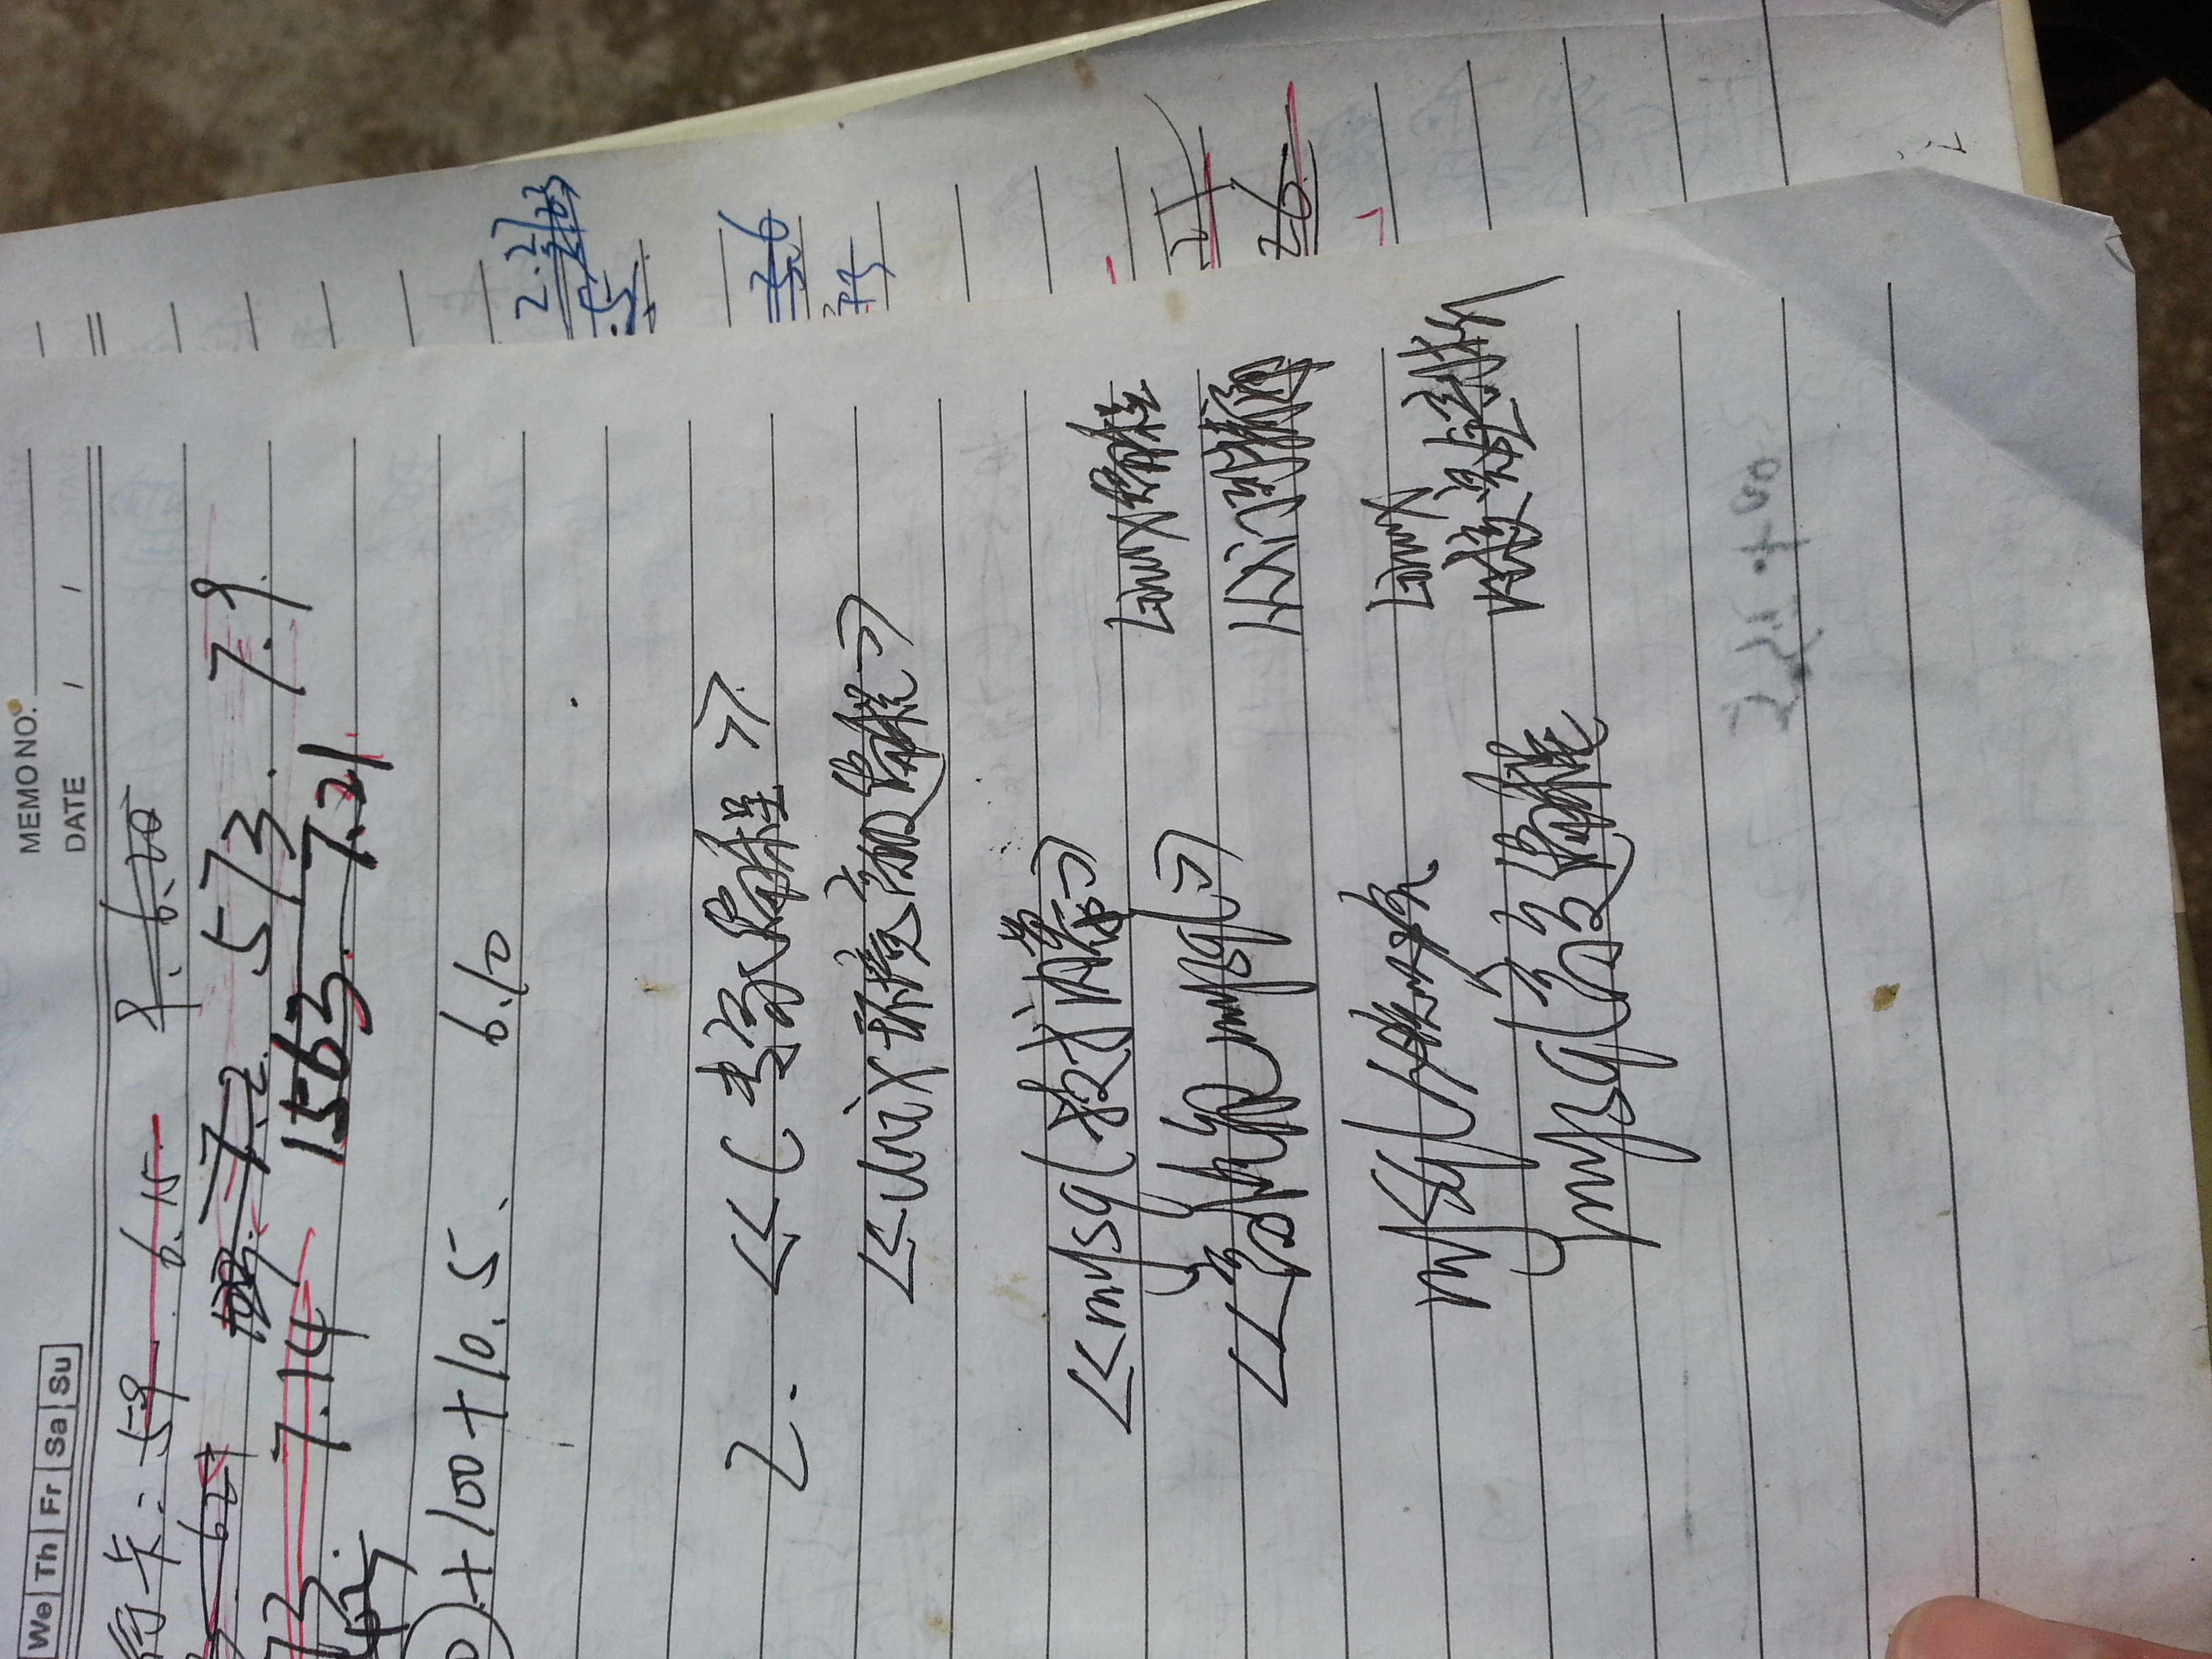 We Th Fr Sa Su
MEMO NO.
DATE / /
行卡: 59 6.15 9. 6.20
621 7.2. 573. 7.9.
73. 7.14 1563. 7.21
+100+10.5. 6.10
2. <<C专家编程>>
<<Unix环境高级编程>>
<<mysql技术内幕>>
<<高性能mysql>>
mysql
mysql高效编程
Linux编程
从入门到精通
Linux
内核完全剖析
2.2
.5
3.6
73
27
26